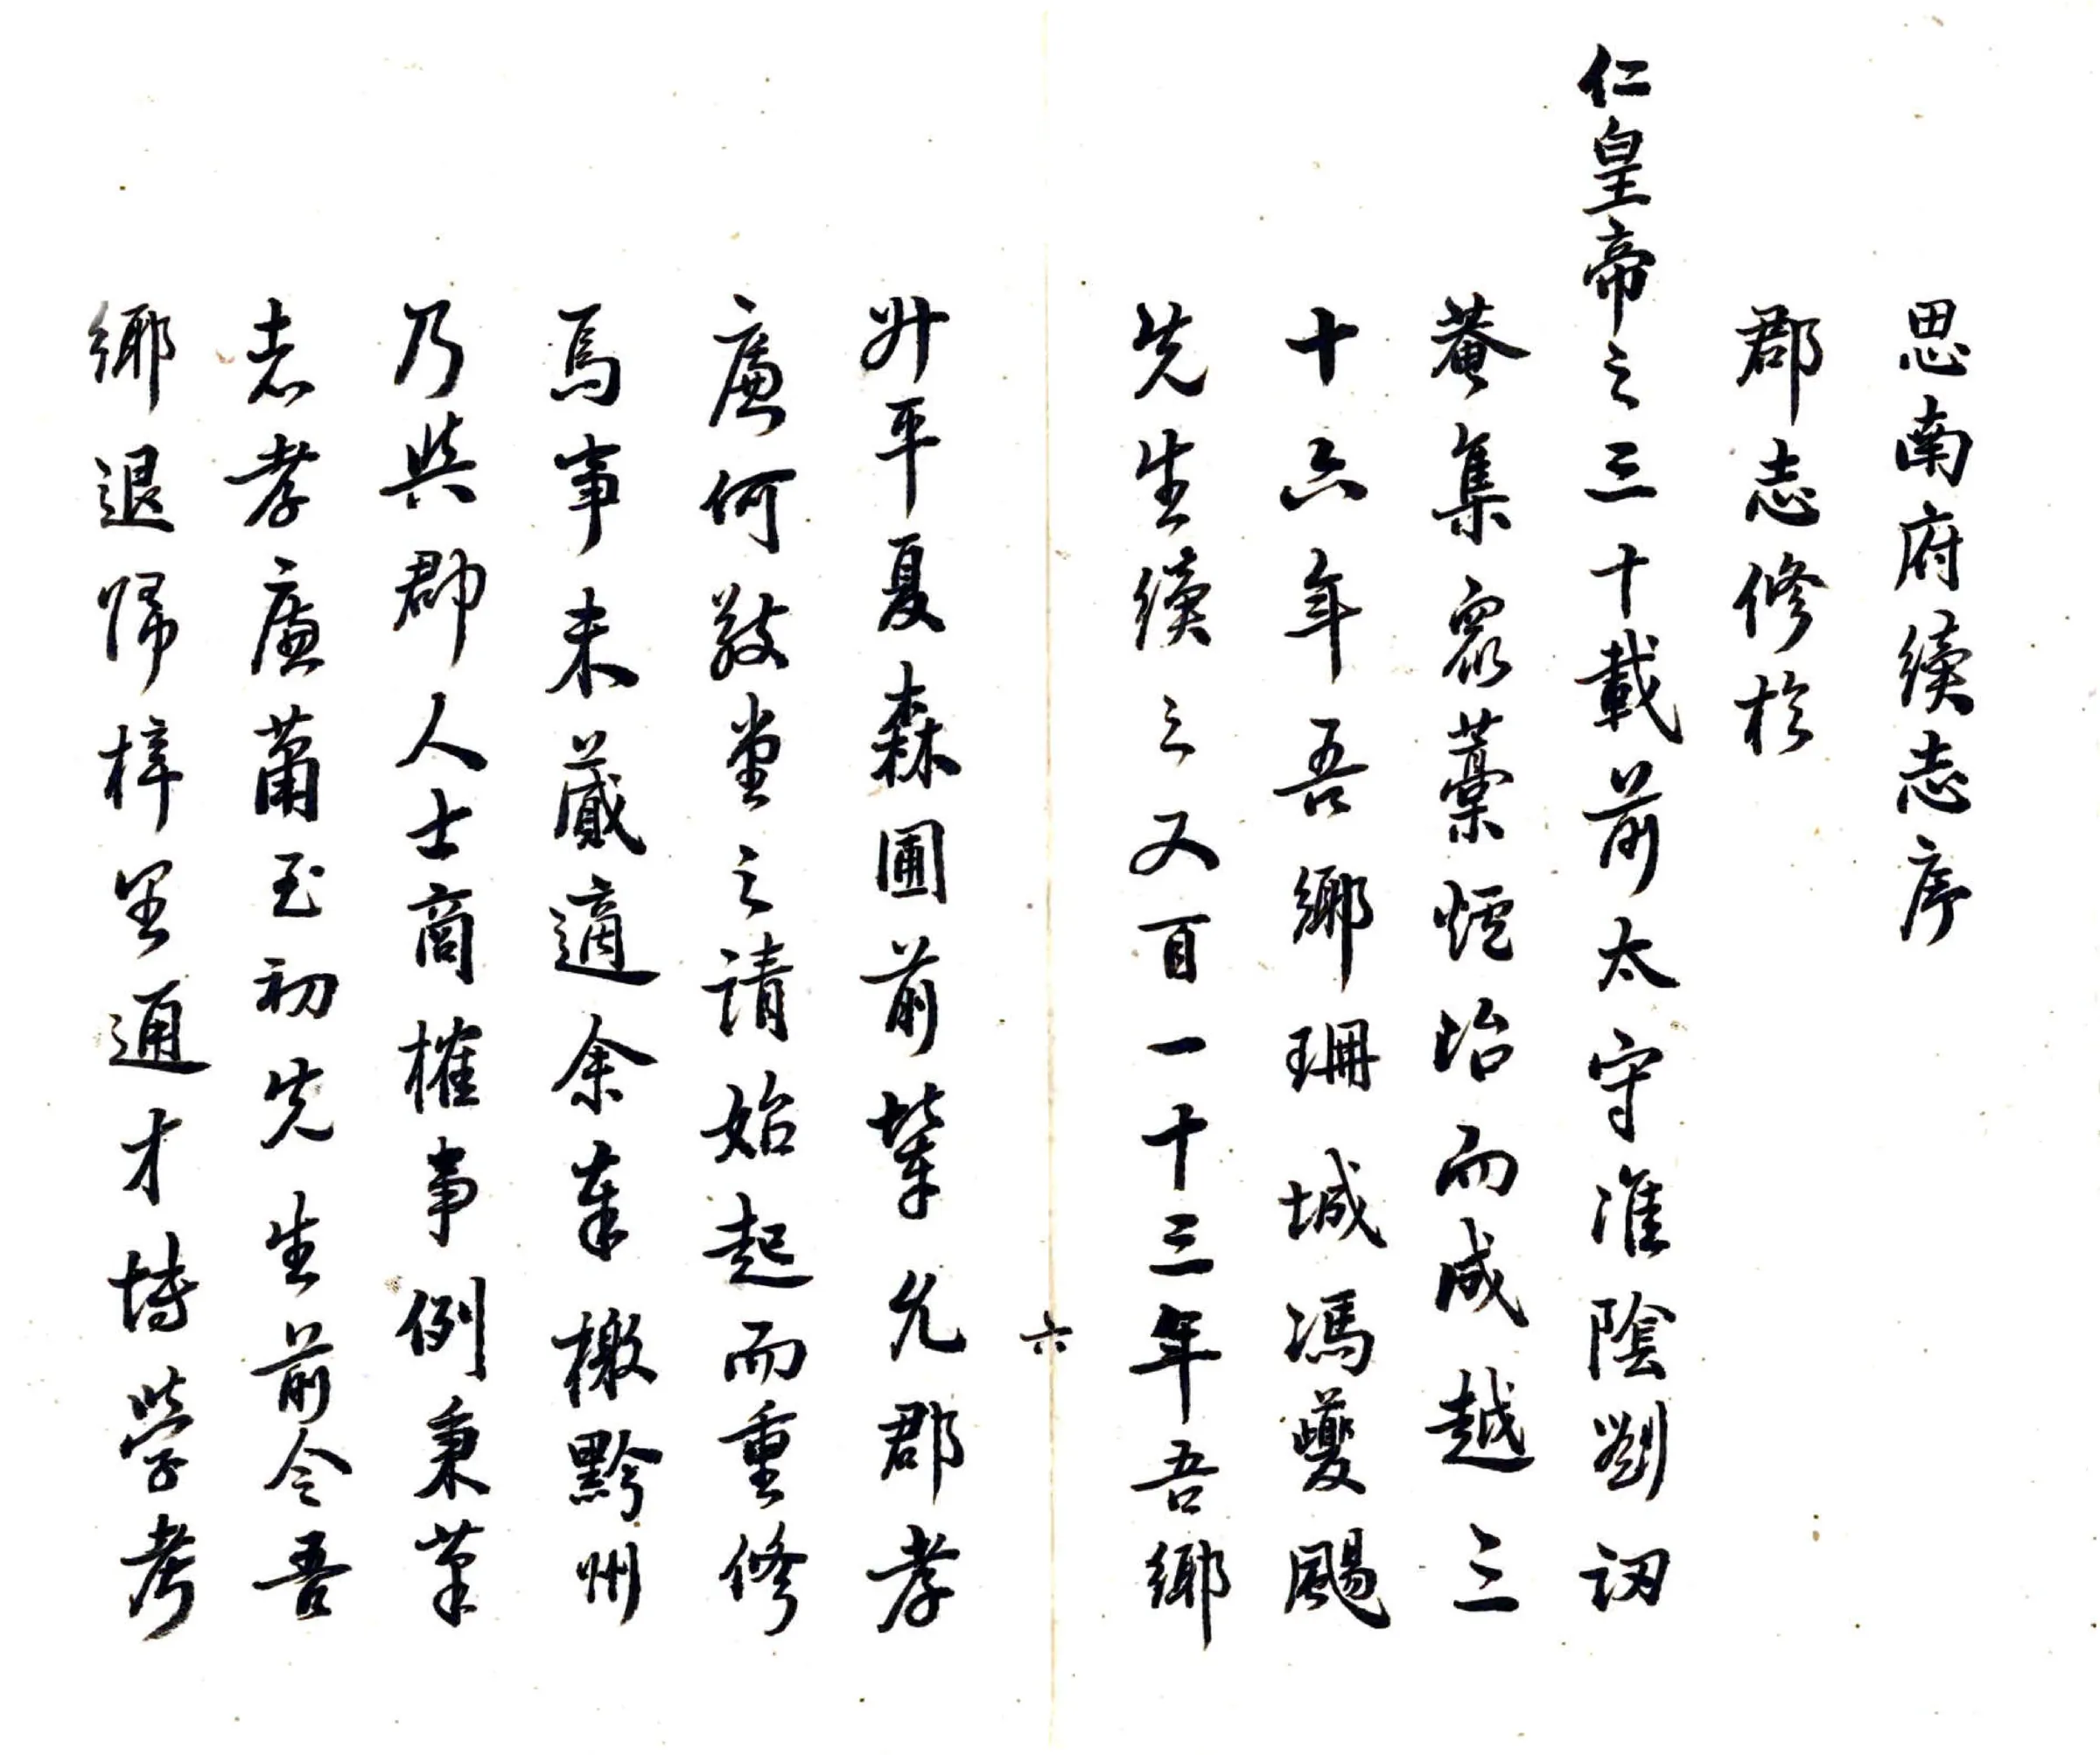 思南府續志序
郡志修於
仁皇帝之三十載前太守淮陰劉訒
菴集衆藁爐冶而成越三
十六年吾鄉珊城馮夔颺
先生續之又百一十三年吾鄉
六
升平夏森圃前輩允郡孝
廉何敬堂之請始起而重修
焉事未蕆適余奉檄黔州
乃與郡人士商榷事例秉筆
者孝廉蕭玉初先生前令吾
鄉退歸梓里通才博學考